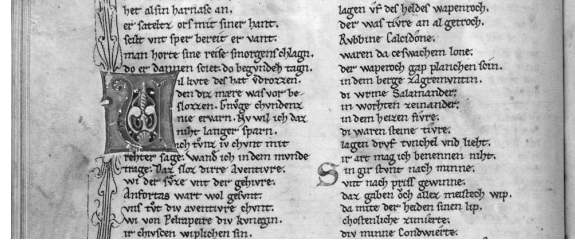 het alsin harnasc an.
er sateltz ors mit siner hant.
scilt vnt sper bereit er vant.
man horte sine reise smorgens chlagn.
do er dannen sciet. do begvnde tagn.
Vil livte des hat verdrozzen.
den diz mære was vor be-
slozzen. gnvge chvndenz
nie ervarn. Nv wil ich daz
niht langer sparn.
ich tvnz iv chvnt mit
rehter sage. wand ich in dem mvnde
trage. daz sloz dirre aventivre.
wi der svze vnt der gehivre.
Anfortas wart wol gesvnt.
vns tvt div aventivre chvnt.
wi von Pelrapeire div kvnegin.
ir chivscen wiplichen sin.
lagen vf des heldes wapenroch.
der was tivre an al getroch.
Rvbbine Calcidone.
waren da ce swachem lone.
der waperoch gap planchen scin.
in dem berge zagremvntin.
di wrme Salamander.
in worhten zeinander.
in dem heizen fivre.
di waren steine tivre.
lagen drvf tvnchel vnd lieht.
ir art mag ich benennen niht.
Sin gir stvnt nach minne.
vnt nach priss gewinne.
daz gaben och allez meistech wip.
da mite der heiden sinen lip.
chostenliche zimierte.
div minne condwierte.